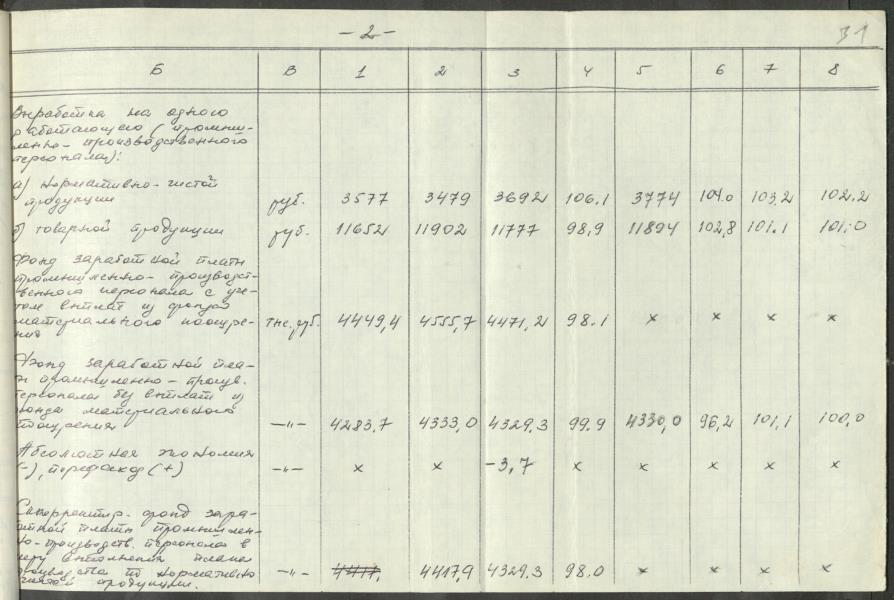 - 2 -
31
Б В 1 2 3 4 5 6 7 8
Выработка на одного
работающего (промыш-
ленно-производственного
персонала):
а) нормативно-чистой
продукции руб. 3577 3479 3692 106.1 3774 104.0 103,2 102.2
б) товарной продукции руб. 11652 11902 11777 98,9 11894 102,8 101.1 101.0
Фонд заработной платы
промышленно-производст-
венного персонала с уче-
том выплат из фонда
материального поощре-
ния тыс. руб. 4449,4 4555,7 4471,2 98.1 х х х х
Фонд заработной пла-
ты промышленно-произв.
персонала без выплат из
фонда материального
поощрения -"- 4283,7 4333,0 4329.3 99.9 4330,0 96,2 101,1 100,0
Абсолютная экономия
(-), перерасход (+) -"- х х -3,7 х х х х х
Скорректир. фонд зара-
ботной платы промышлен-
но-производств. персонала в
меру выполнения плана
производства по нормативно
чистой продукции. -"- 4417, 4417,9 4329.3 98.0 х х х х